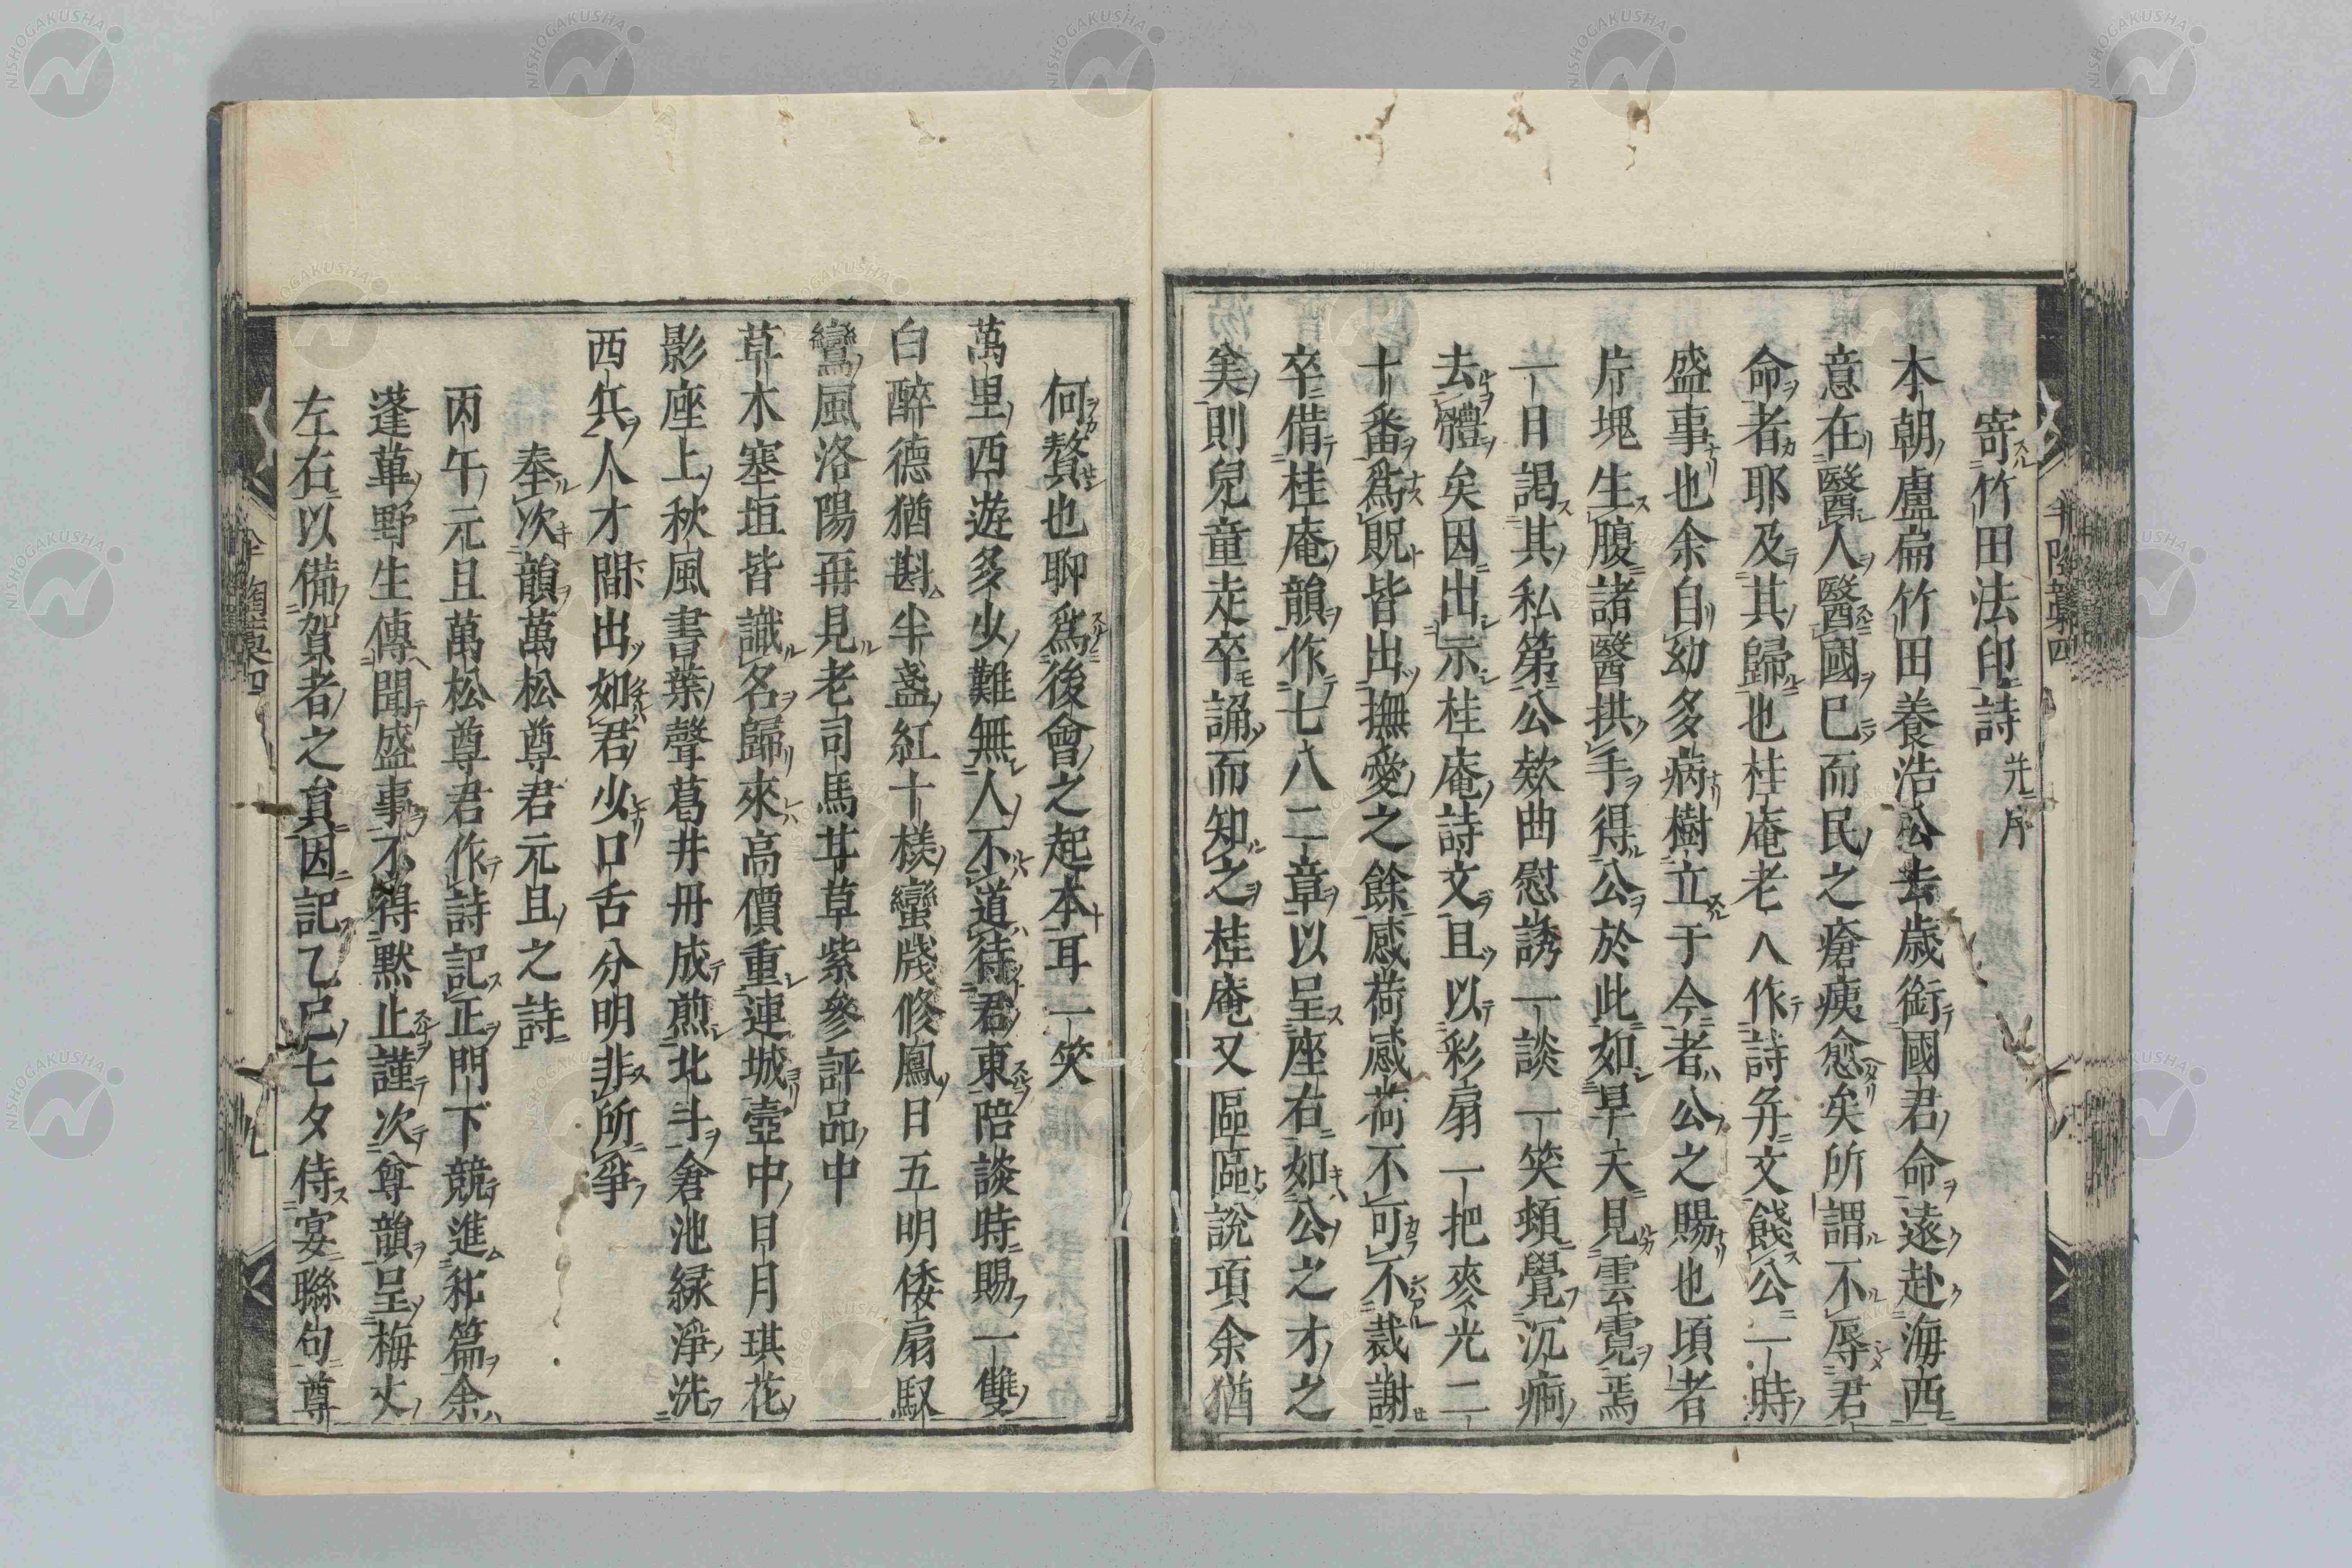 寄竹田法印詩 并序
本朝盧扁竹田養浩公去歳銜國君命遠赴海西
意在醫人醫國已而民之瘡痍愈矣所謂不辱君
命者耶及其歸也桂庵老人作詩并文餞公一時
盛事也余自幼多病樹立于今者公之賜也頃者
片塊生腹諸醫拱手得公於此如旱天見雲霓焉
一日謁其私第公欸曲慰誘一談一笑頓覺沉痾
去體矣因出示桂庵詩文且以彩扇一把麥光二
十番爲貺皆出撫愛之餘感荷感荷不可不裁謝
卒借桂庵韻作七八二章以呈座右如公之才之
美則兒童走卒誦而知之桂庵又區區說項余猶
何贅也聊爲後會之起本耳一笑
萬里西遊多少難無人不道待君東陪談時賜一雙
白醉德猶斟半盞紅十樣蠻牋修鳳日五明倭扇馭
鸞風洛陽再見老司馬芸草紫參評品中
草木塞垣皆識名歸來高價重連城壺中日月琪花
影座上秋風書葉聲葛井丹成煎北斗倉池緑淨洗
西兵人才間出如君少口舌分明非所爭
奉次韻萬松尊君元旦之詩
丙午元旦萬松尊君作詩記正門下競進和篇余
蓬蓽野生傳聞盛事不得默止謹次尊韻呈梅丈
左右以備賀者之員因記乙巳七夕侍宴聯句尊
半陶藁四
九